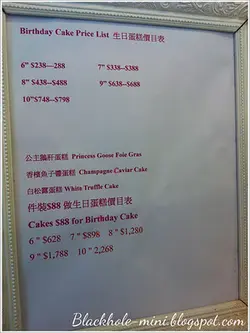 Birthday Cake Price List 生日蛋糕價目表
6" $238—288 7" $338--$388
8" $438--$488 9" $638--$688
10"$748--$798
公主鵝肝蛋糕 Princess Goose Foie Gras
香檳魚子醬蛋糕 Champagne Caviar Cake
白松露蛋糕 White Truffle Cake
件裝$88 做生日蛋糕價目表
Cakes $88 for Birthday Cake
6 " $628 7 " $898 8 " $1,280
9 " $1,788 10 " 2,268
Blackhole-mini.blogspot.com